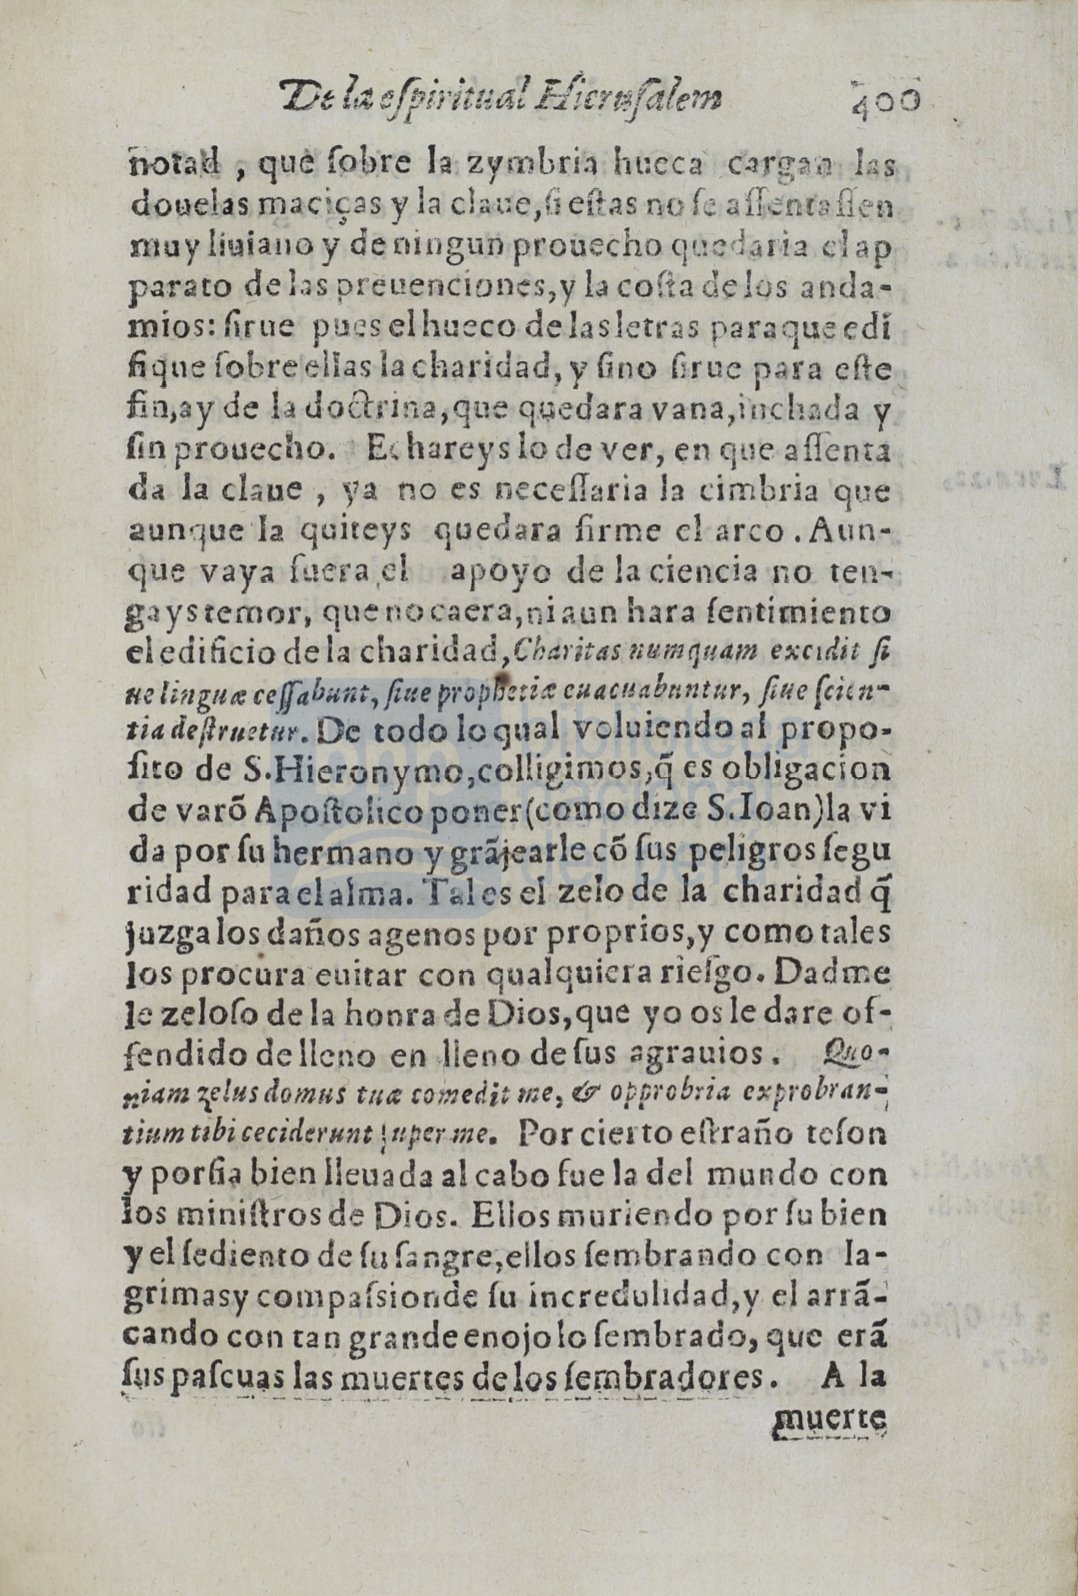 De la eſpiritual Hieruſalem 400
notad , que ſobre la zymbria hueca cargan las
douelas maciças y la claue, ſi eſtas no ſe aſſentaſſen
muy liuiano y de ningun prouecho quedaria el ap
parato de las preuenciones, y la coſta de los anda-
mios: ſirue pues el hueco de las letras para que edi
fique ſobre ellas la charidad, y ſino ſirue para eſte
fin, ay de la doctrina, que quedara vana, inchada y
ſin prouecho. Echareys lo de ver, en que aſſenta
da la claue , ya no es neceſſaria la cimbria que
aunque la quiteys quedara firme el arco . Aun-
que vaya fuera el apoyo de la ciencia no ten-
gays temor, que no caera, ni aun hara ſentimiento
el edificio de la charidad, Charitas numquam excidit ſi
ue linguæ ceſſabunt, ſiue prophetiæ euacuabuntur, ſiue ſcien-
tia deſtruetur. De todo lo qual voluiendo al propo-
ſito de S. Hieronymo, colligimos, q̃ es obligacion
de varõ Apoſtolico poner (como dize S. Ioan) la vi
da por ſu hermano y grãjearle cõ ſus peligros ſegu
ridad para el alma. Tal es el zelo de la charidad q̃
juzga los daños agenos por proprios, y como tales
los procura euitar con qualquiera rieſgo. Dadme
le zeloſo de la honra de Dios, que yo os le dare of-
fendido de lleno en lleno de ſus agrauios . Quo-
niam zelus domus tuæ comedit me, & opprobria exprobran-
tium tibi ceciderunt ſuper me. Por cierto eſtraño teſon
y porfia bien lleuada al cabo fue la del mundo con
los miniſtros de Dios. Ellos muriendo por ſu bien
y el ſediento de ſu ſangre, ellos ſembrando con la-
grimas y compaſsion de ſu incredulidad, y el arrã-
cando con tan grande enojo lo ſembrado, que erã
ſus paſcuas las muertes de los ſembradores . A la
muerte